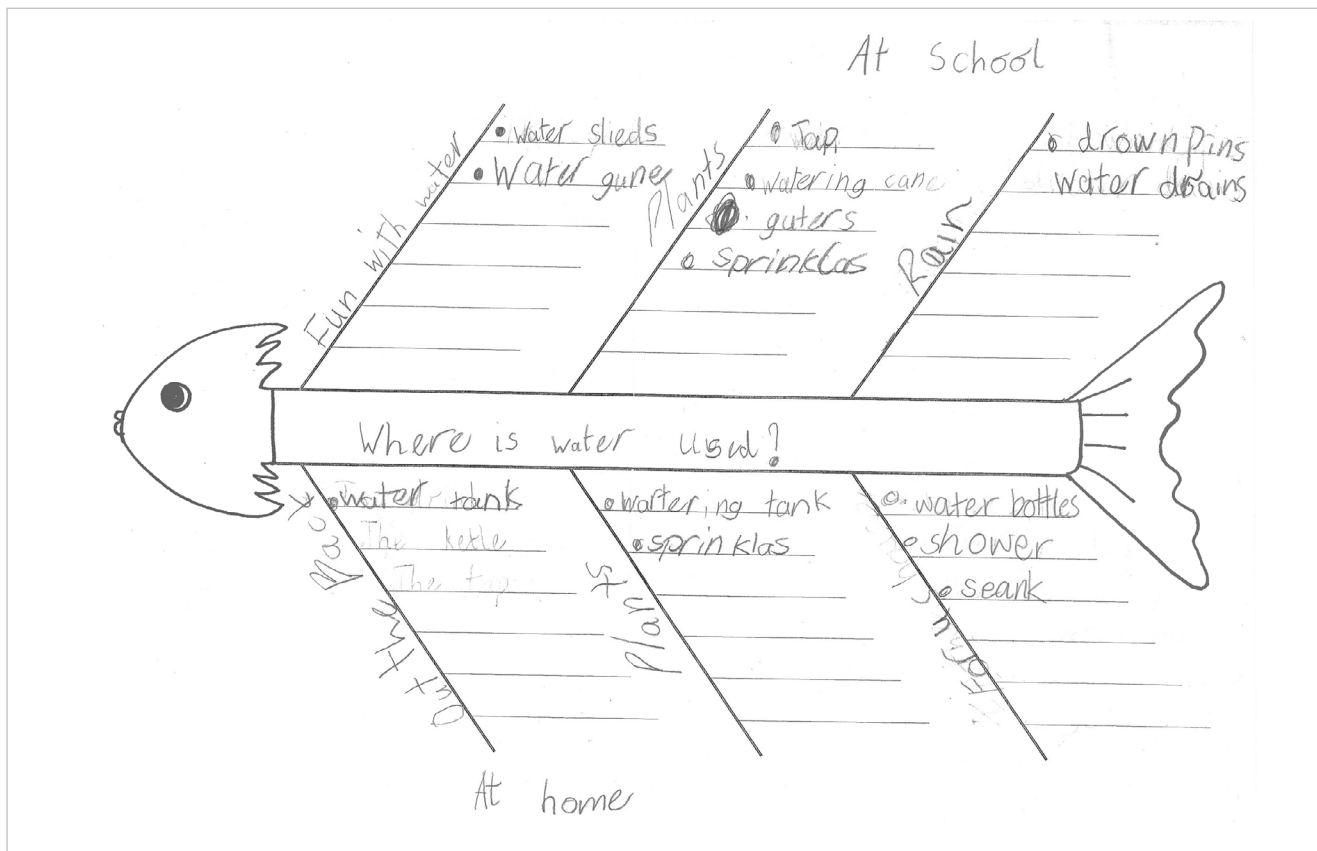 At School
Fun with water
• Water slieds
• Water gunes
Plants
• Tap
• watering canc
• guters
• sprinklas
Rain
• drown Pins
water drains
Where is water used?
Out the
• water tank
The ketle
The tap
Plants
• wartering tank
• sprinklas
• water bottles
• shower
• seank
At home